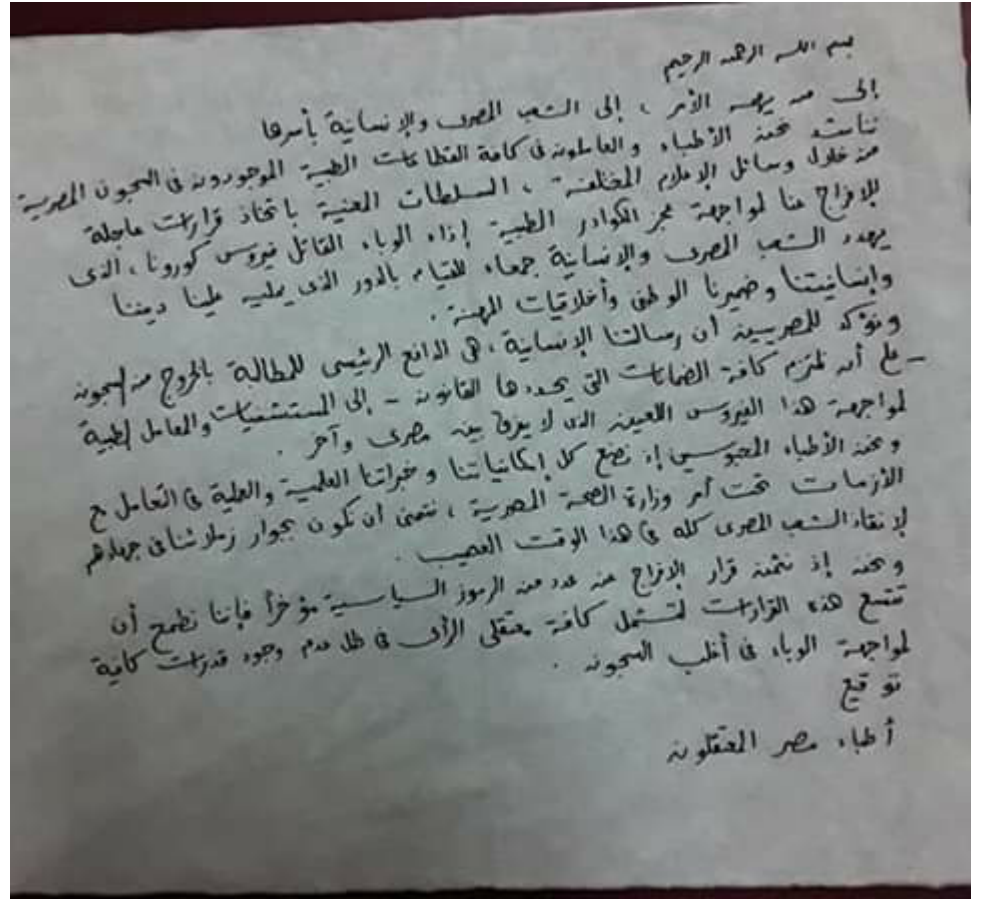 بسم الله الرحمن الرحيم
إلى من يهمه الأمر ، إلى الشعب المصرى والإنسانية بأسرها
نناشد نحن الأطباء والعاملون فى كافة القطاعات الطبية الموجودون فى السجون المصرية
من خلال وسائل الإعلام المختلفة ، السلطات المعنية باتخاذ قرارات عاجلة
للإفراج عنا لمواجهة عجز الكوادر الطبية إزاء الوباء القاتل فيروس كورونا ، الذى
يهدد الشعب المصرى والإنسانية جمعاء للقيام بالدور الذى يمليه علينا ديننا
وإنسانيتنا وضميرنا الوطنى وأخلاقيات المهنة .
ونؤكد للمصريين أن رسالتنا الإنسانية ، هى الدافع الرئيسى للمطالبة بالخروج من السجون
- على أن نلتزم كافة الضمانات التى يحددها القانون - إلى المستشفيات والمعامل الطبية
لمواجهة هذا الفيروس اللعين الذى لا يفرق بين مصرى وآخر .
ونحن الأطباء المحبوسين إذ نضع كل إمكانياتنا وخبراتنا العلمية والعملية فى التعامل مع
الأزمات تحت أمر وزارة الصحة المصرية ، نتمنى ان نكون بجوار زملائنا فى جهادهم
لإنقاذ الشعب المصرى كله فى هذا الوقت العصيب .
ونحن إذ نثمن قرار الإفراج عن عدد من الرموز السياسية مؤخراً فإننا نطمح أن
تتسع هذه القرارات لتشمل كافة معتقلى الرأى فى ظل عدم وجود قدرات كافية
لمواجهة الوباء فى أغلب السجون .
توقيع
أطباء مصر المعتقلون